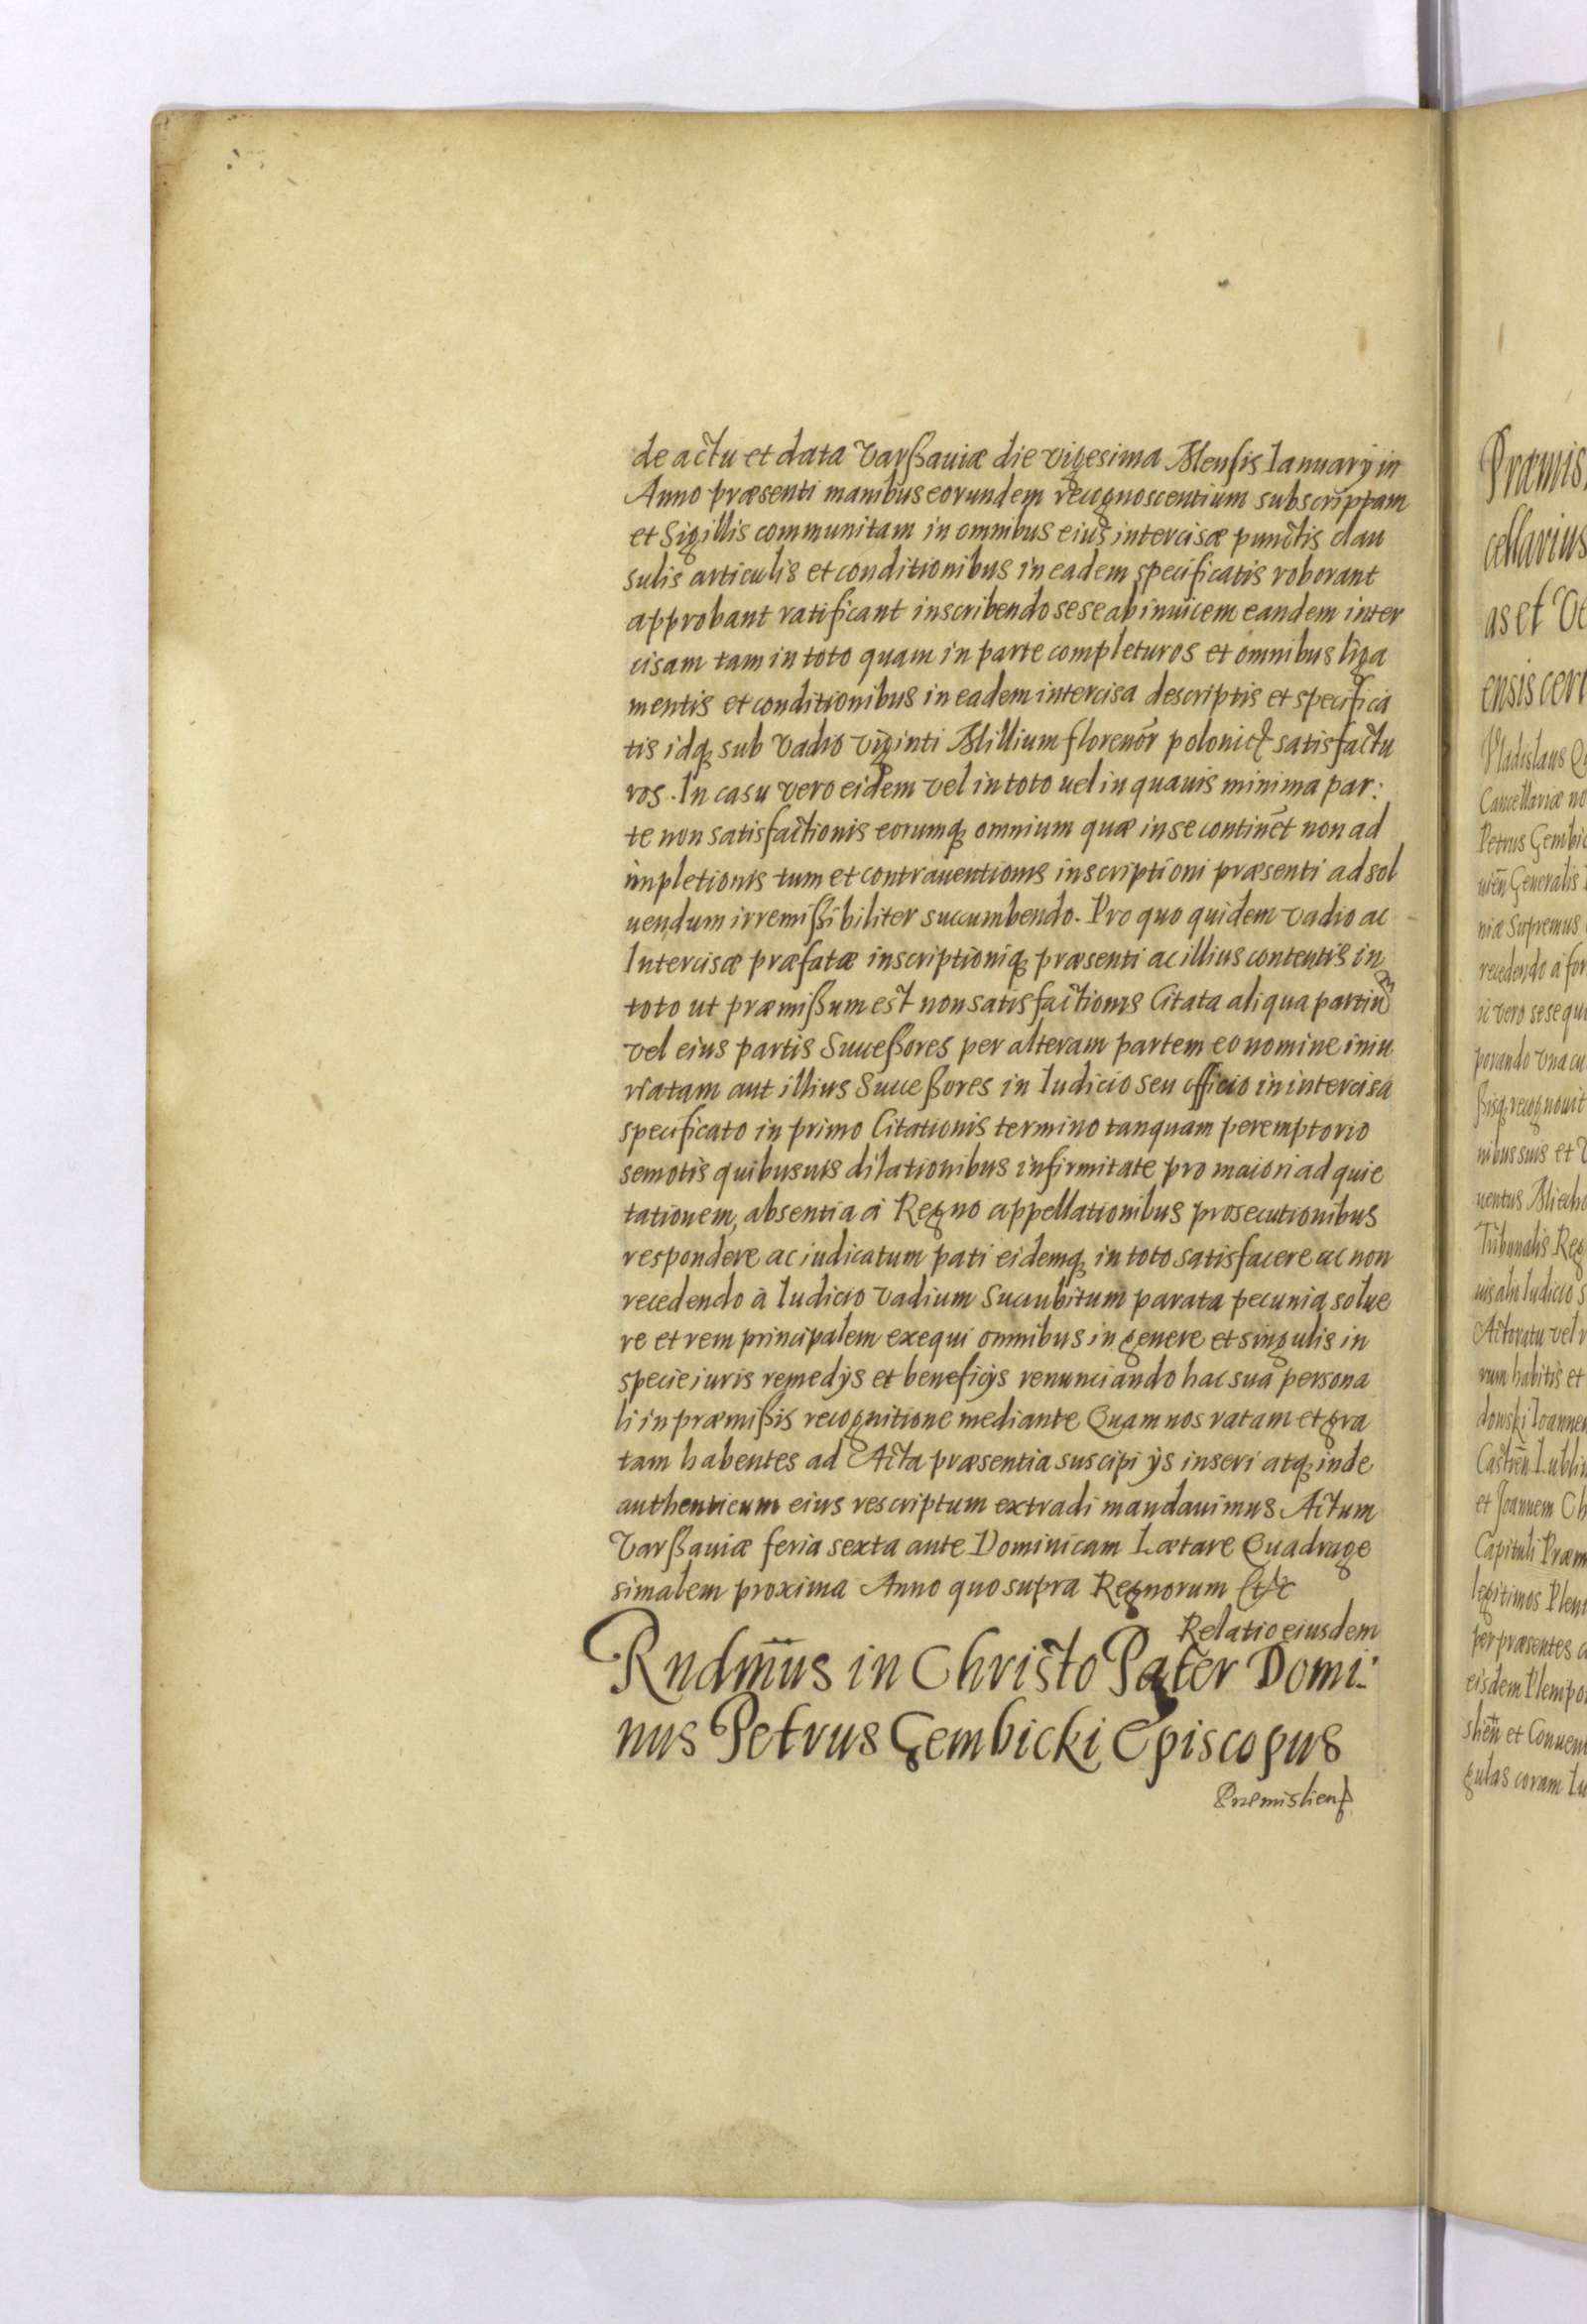 de actu et data Varßauiæ die vigesima Mensis Ianuarÿ in
Anno præsenti manibus eorundem recognoscentium subscriptam
et Sigillis communitam in omnibus eius intercisæ punctis clau
sulis articulis et conditionibus in eadem specificatis roborant
approbant ratificant inscribendo sese abinuicem eandem inter
cisam tam in toto quam in parte completuros et omnibus liga
mentis et conditionibus in eadem intercisa descriptis et specifica
tis idq; sub Vadio viginti Millium florenor̃ polonical satisfactu
ros. In casu vero eidem vel in toto uel in quauis minima par:
te non satisfactionis eorumq; omnium quæ in se continet̃ non ad
impletionis tum et contrauentionis inscriptioni præsenti ad sol
uendum irremißibiliter succumbendo. Pro quo quidem vadio ac
Intercisæ præfatæ inscriptioniq; præsenti ac illius contentis in
toto ut præmißum est non satisfactionis Citata aliqua partium
vel eius partis Succeßores per alteram partem eo nomine iniu
riatam aut illius Succeßores in Iudicio seu officio in intercisa
specificato in primo Citationis termino tanquam peremptorio
semotis quibusuis dilationibus infirmitate pro maiori ad quie
tationem, absentia à Regno appellationibus prosecutionibus
respondere ac iudicatum pati eidemq; in toto satisfacere ac non
recedendo à Iudicio vadium Succubitum parata pecunia solue
re et rem principalem exequi omnibus in genere et singulis in
specie iuris remedÿs et beneficÿs renunciando hac sua persona
li in præmißis recognitione mediante Quam nos ratam et gra
tam habentes ad Acta præsentia suscipi ÿs inseri atq; inde
authenticum eius rescriptum extradi mandauimus Actum
Varßauiæ feria sexta ante Dominicam Lætare Quadrage
simalem proxima Anno quo supra Regnorum Etc
Relatio eiusdem
Rndm̃us in Christo Pater Domi:
nus Petrus Gembicki Episcopus
Præmislien
Præmis
cellarius
as et Ve
ensis cert
Vladislaus
Cancellariæ no
Petrus Gembic
uien̄ Generalis
niæ Supremus
recedendo a for
ic vero sese qu
porando vna cu
ßisq; recognouit
nibus suis et
uentus Miecho
Tribunalis Reg
uis alio Iudicio s
Actoratu vel r
rum habitis et
dowski Ioannem
Castren̄ Lublin
et Joannem Ch
Capituli Præm
legitimos Pleni
per præsentes a
eisdem Plenipo
slien̄ et Conuen
gulas coram Iu